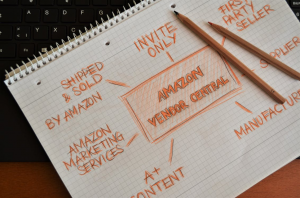 INVITE
ONLY
FIRST
PARTY
SELLER
SHIPPED
& SOLD
BY AMAZON
AMAZON
VENDOR CENTRAL
SUPPLIER
AMAZON
MARKETING
SERVICES
MANUFACTUR
A+
CONTENT